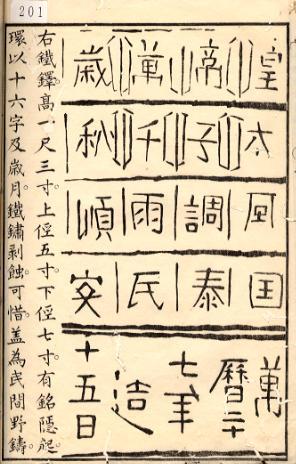 201
皇帝萬歲
太子千秋
風調雨順
囯泰民安
萬
曆二十
七年
造
十五日
右鐵鐸高一尺三寸上俓五寸下俓七寸有銘隱起
環以十六字及歲月鐵鏽剝蝕可惜蓋為民間野鑄